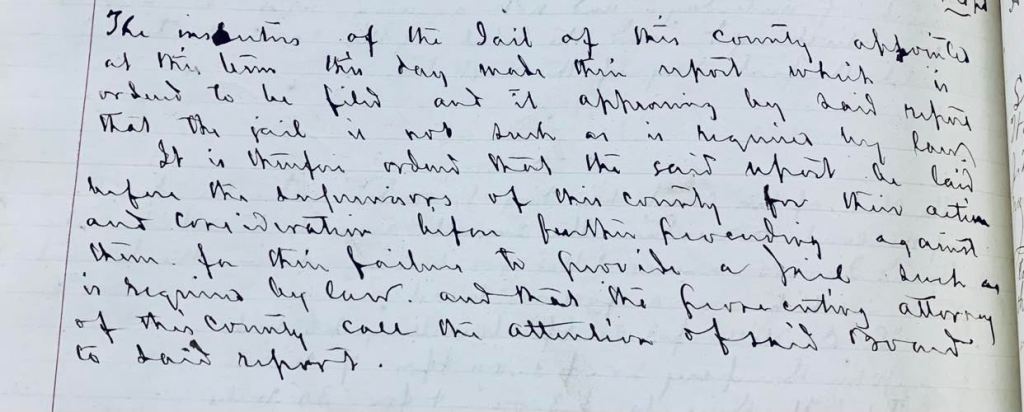 The inspectors of the Jail of this county appointed
at this term this day made their report which is
ordered to be filed and it appearing by said report
that the jail is not such as is required by law,
It is therefore ordered that the said report be laid
before the supervisors of this county for their action
and consideration before further proceeding against
them for their failure to provide a Jail such as
is required by law. and that the prosecuting attorney
of this county call the attention of said Board
to said report.